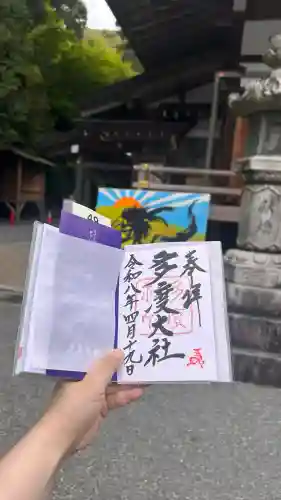 奉拝
多度大社
令和八年四月十九日
49